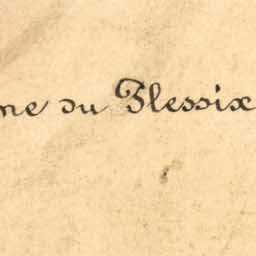 ne du Plessix